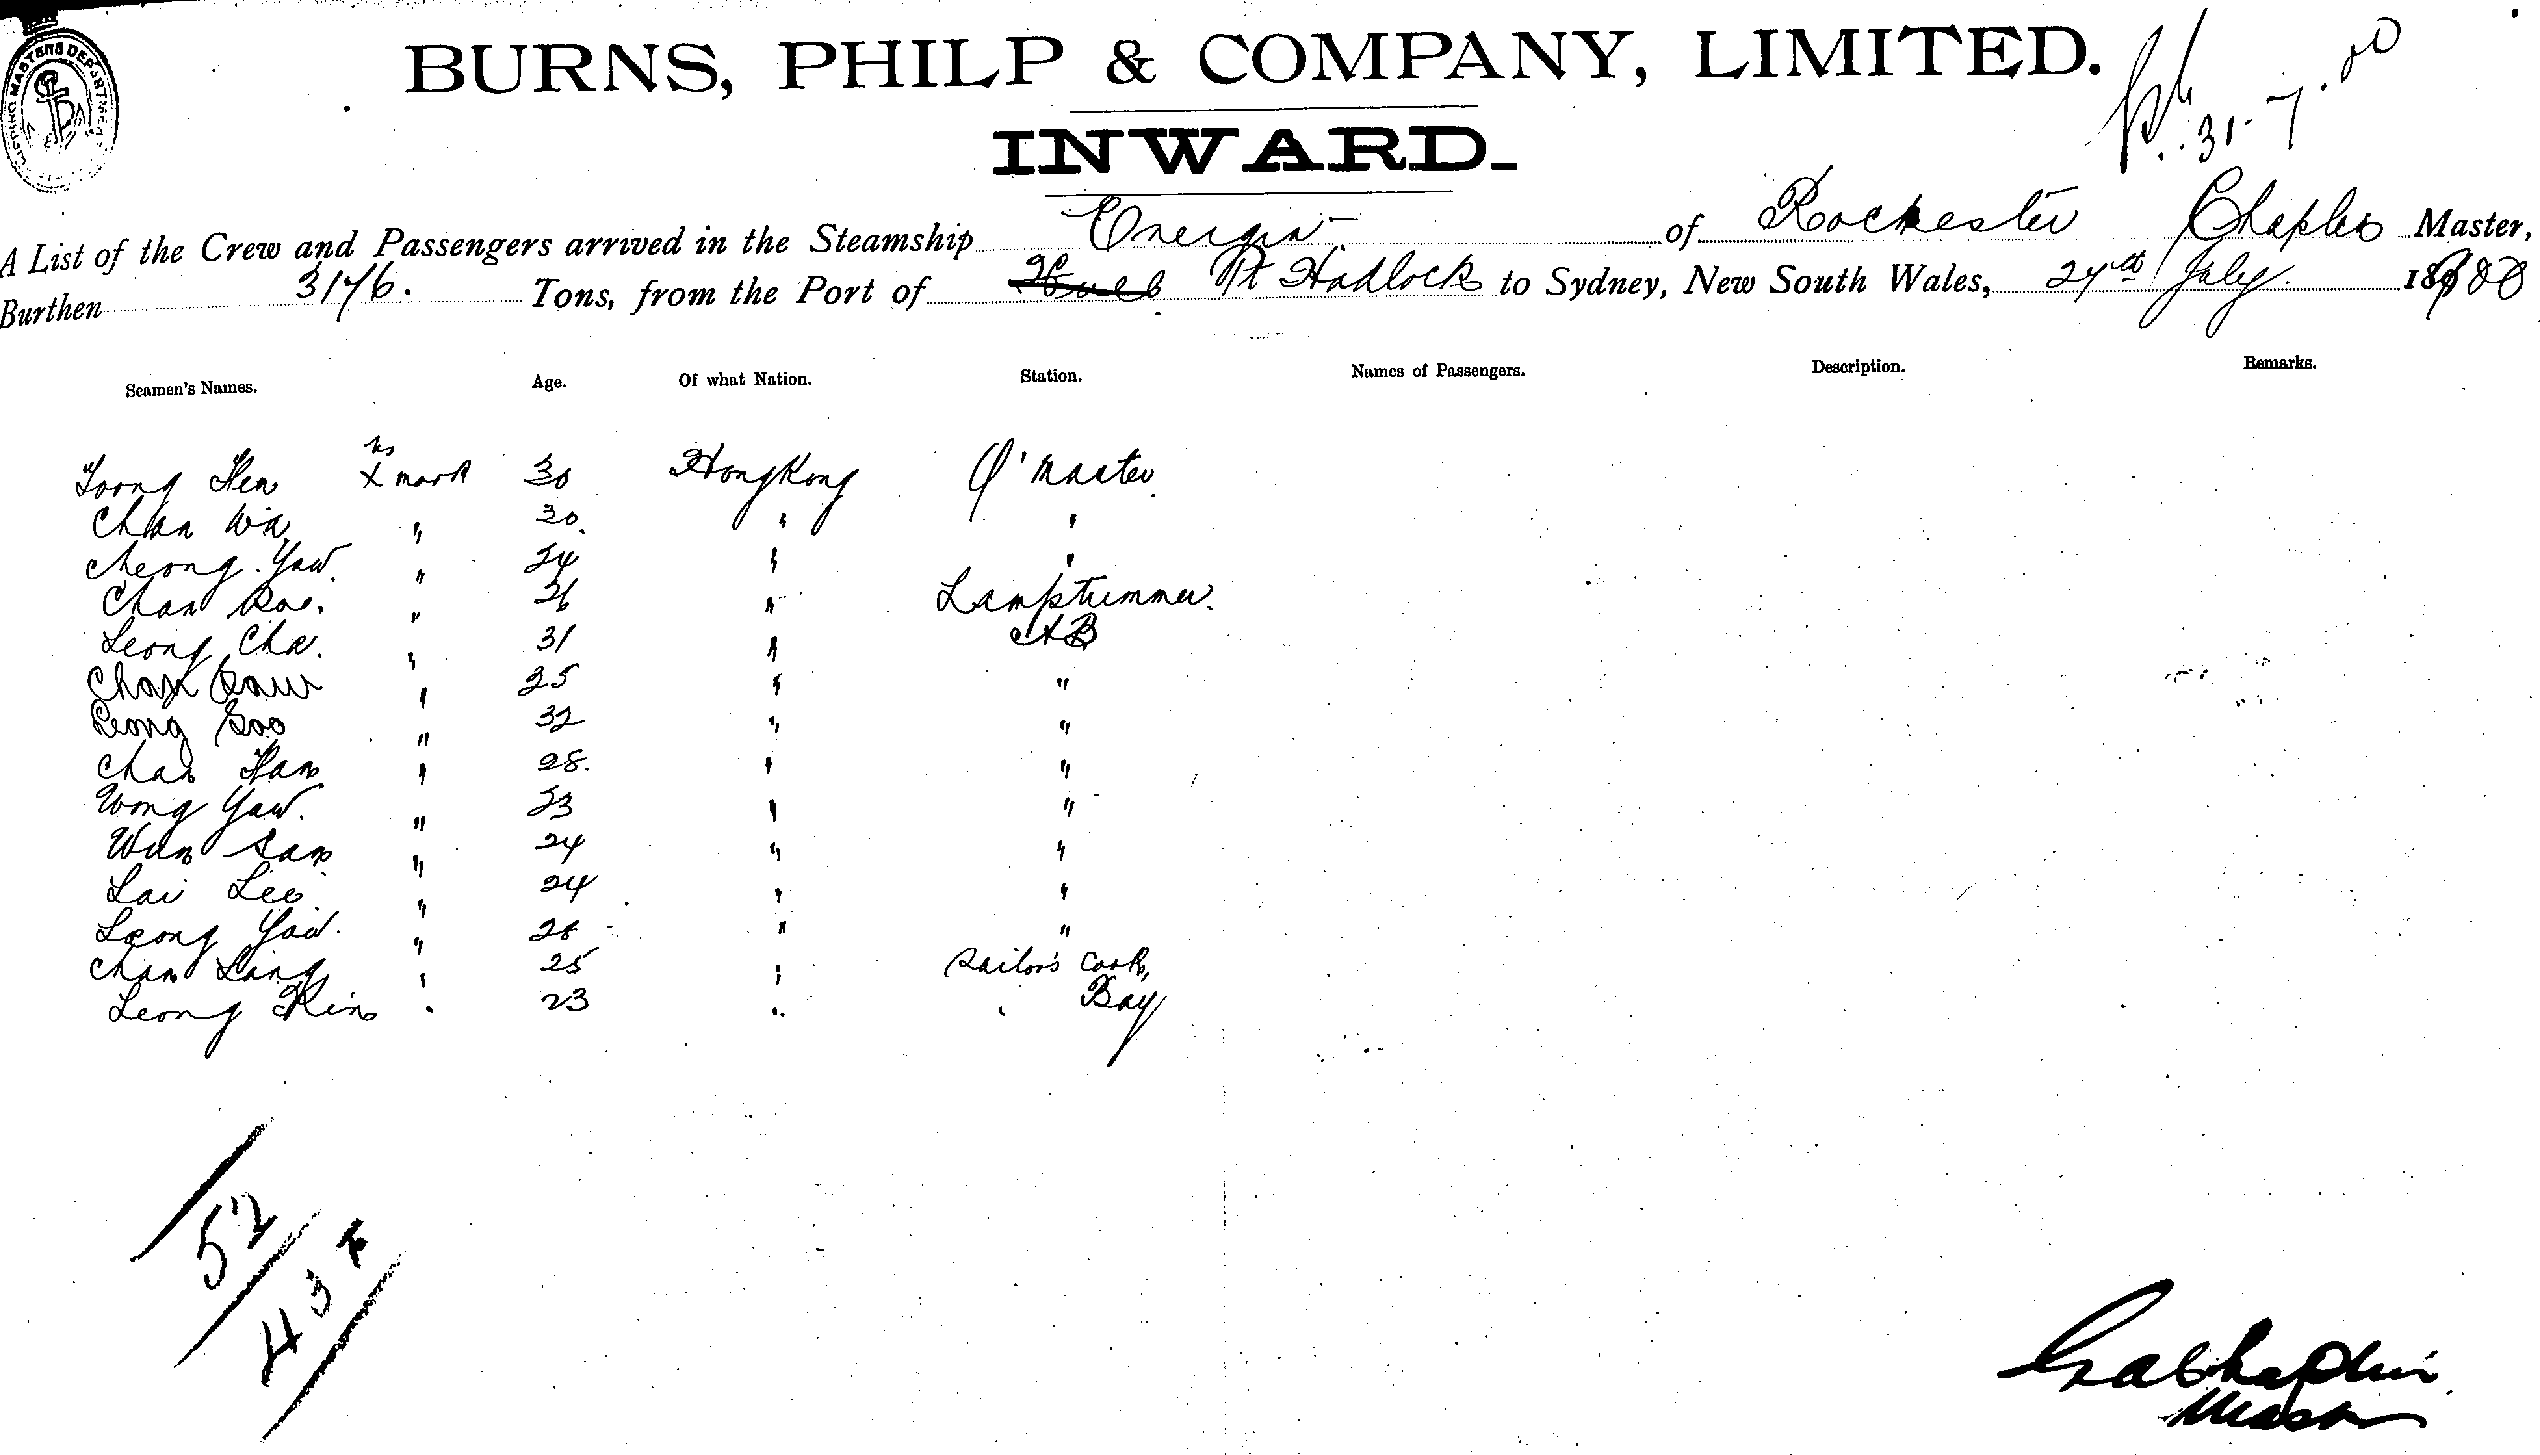 SHIPPING MASTERS DEPARTMENT
BURNS, PHILP & COMPANY, LIMITED.
31-7.00
INWARD.
A List of the Crew and Passengers arrived in the Steamship Energia of Rochester Chaplin Master,
Burthen 3146. Tons, from the Port of Pt Hadlock to Sydney, New South Wales, 24th July 1900
Seamen's Names. Age. Of what Nation. Station. Names of Passengers. Description. Remarks.
Toong Hen his X mark 30 HongKong Q'Master
Chan Wa " 30 " "
Cheong Yaw " 24 " "
Chan Koo. " 26 " Lamptrimmer.
Leong Cha. " 31 " AB
Chan Kaw " 25 " "
Leong Soo " 32 " "
Chan Ham " 28. " "
Wong Yaw. " 23 " "
Wan Sam " 24 " "
Lai Lee " 24 " "
Leong Yaw. " 26 " "
Chan Ling " 25 " Sailor's Cook,
Leong Kin " 23 " " Boy
52
43
Chaplin
Master